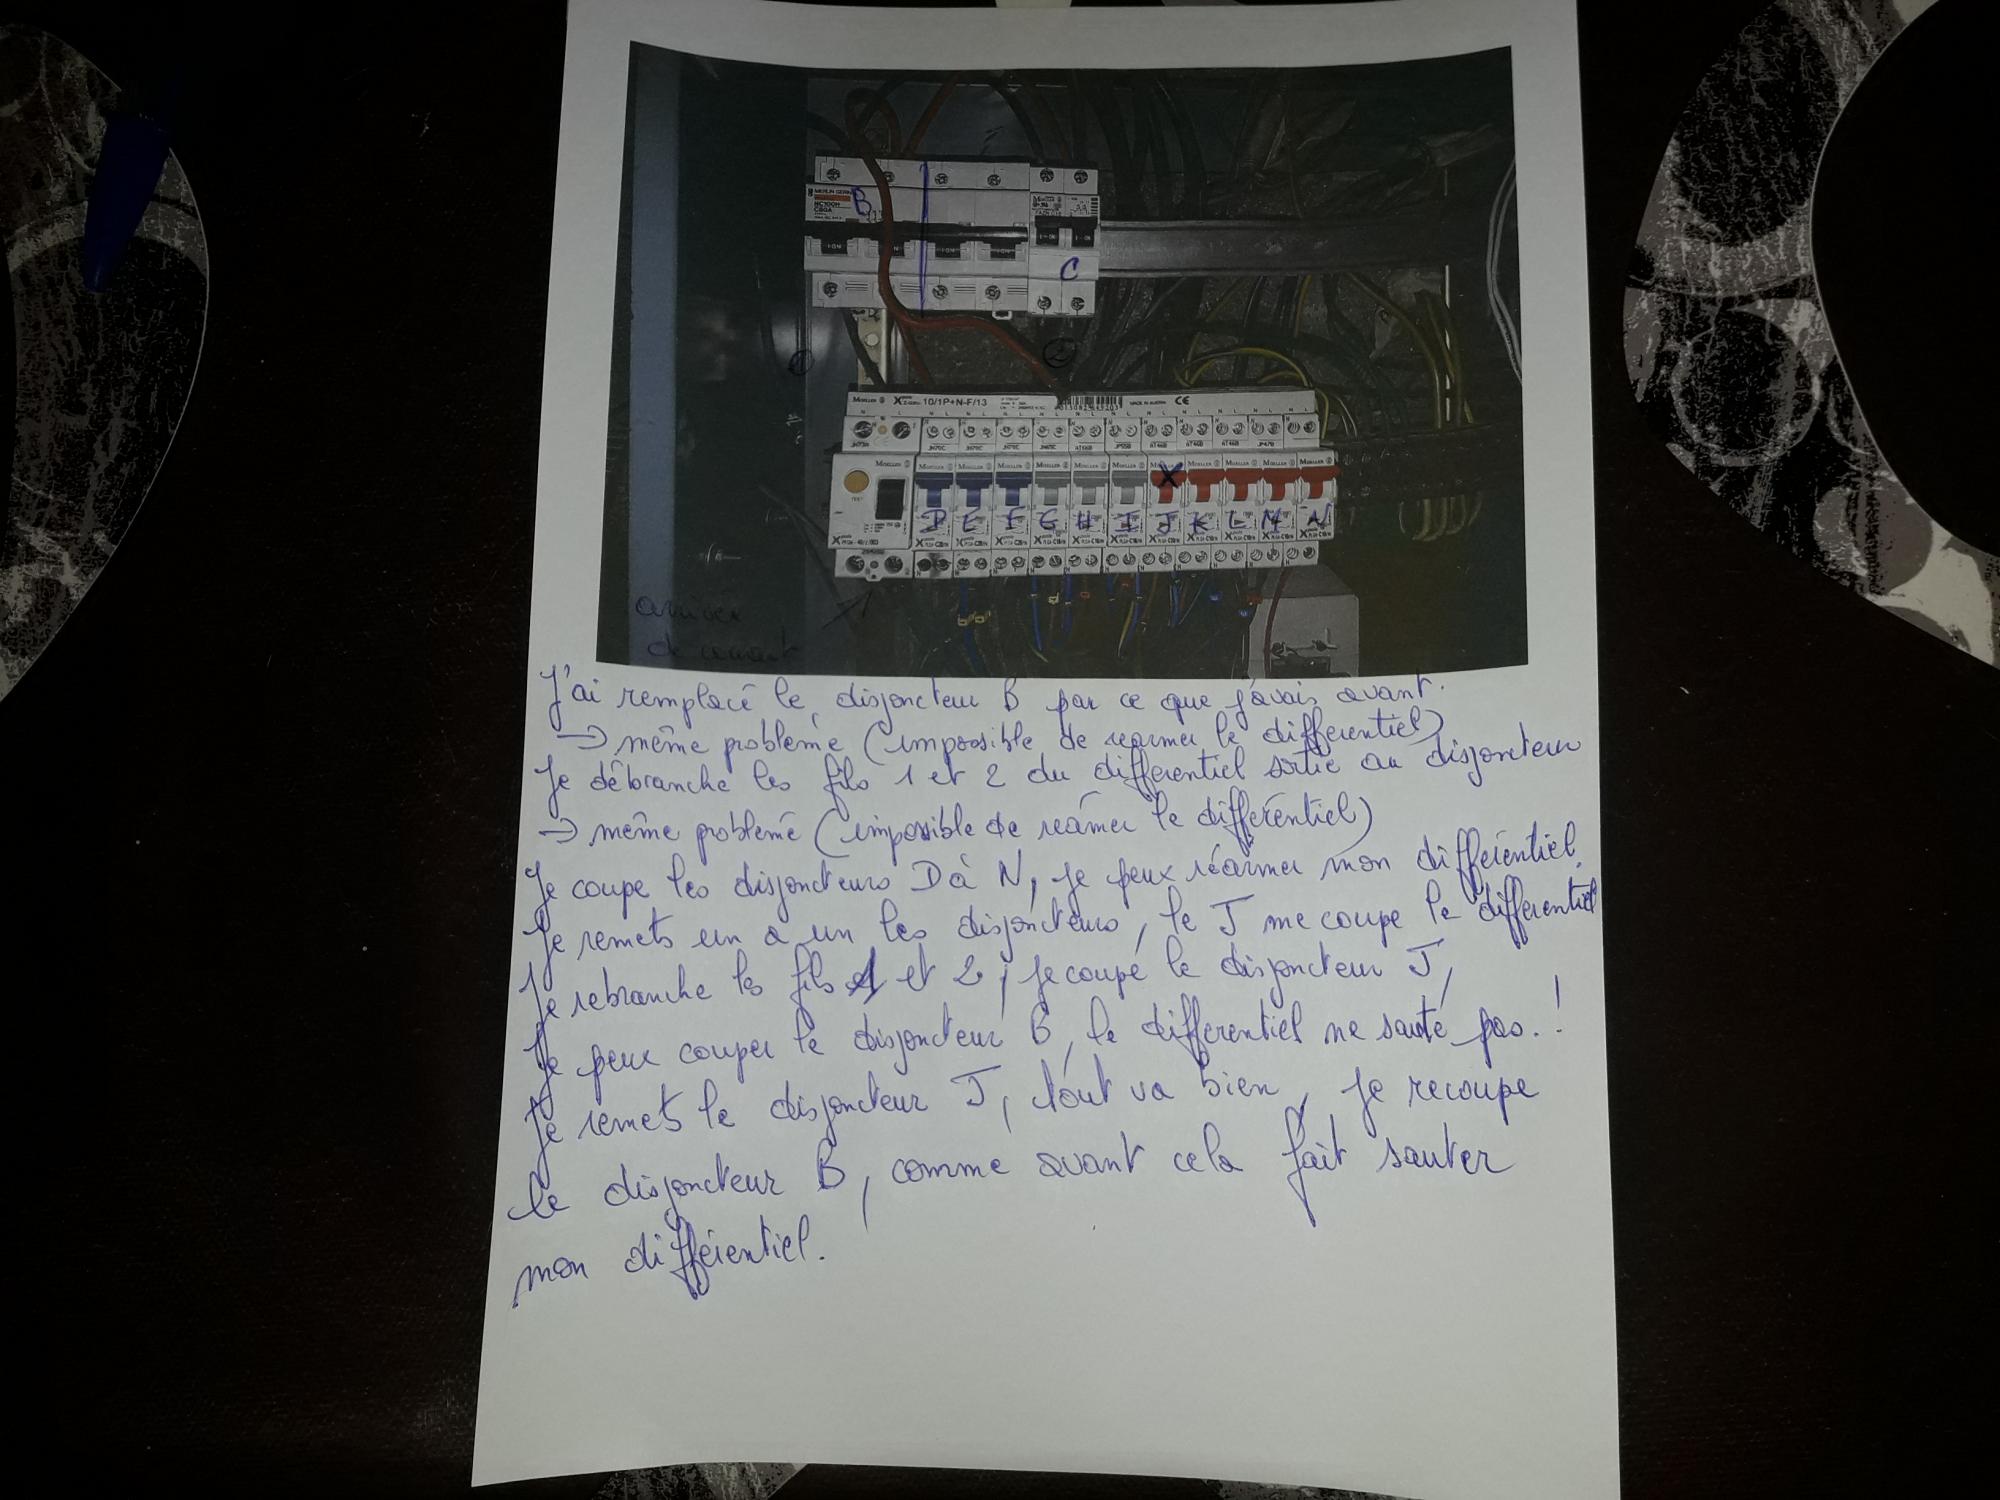 MERLIN GERIN
NC100H
C80A
B
C
1
2
MOELLER 10/1P+N-F/13 MADE IN AUSTRIA CE
N L
MOELLER MOELLER MOELLER MOELLER MOELLER MOELLER MOELLER MOELLER MOELLER MOELLER MOELLER
TEST
X
D E F G H I J K L M N
arrivée
de courant
J'ai remplacé le disjoncteur B par ce que j'avais avant.
→ même problème (impossible de réarmer le différentiel)
Je débranche les fils 1 et 2 du differentiel sortie au disjoncteur
→ même problème (impossible de réarmer le différentiel)
Je coupe les disjoncteurs D à N, je peux réarmer mon différentiel.
Je remets un à un les disjoncteurs, le J me coupe le différentiel
Je rebranche les fils 1 et 2, je coupe le disjoncteur J,
Je peux couper le disjoncteur B, le differentiel ne saute pas.!
Je remets le disjoncteur J, tout va bien, je recoupe
le disjoncteur B, comme avant cela fait sauter
mon différentiel.